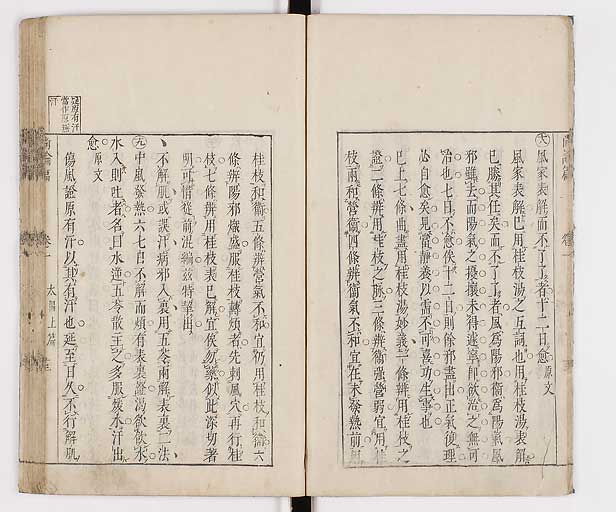 風家表解而不了了者十二日愈原文
風家表解已用桂枝湯之互詞也用桂枝湯表解
已勝其任矣而不了了者風為陽邪衞為陽氣風
邪雖去而陽氣之擾攘未得遽寧即欲治之無可
治也七日不愈俟十二日則餘邪盡出正氣復理
必自愈矣見當靜養以需不可喜功生事也
已上七條曲盡用桂枝湯妙義一條辨用桂枝之
證二條辨用桂枝之脈三條辨衞強營弱宜用桂
枝兩和營衞四條辨衞氣不和宜在未發熱前用
桂枝和衞五條辨營氣不和宜仍用桂枝和衞六
條辨陽邪熾盛服桂枝轉煩者先刺風穴再行桂
枝七條辨用桂枝表已解宜俟勿藥似此深切著
明可惜從前混編茲特拏出
不解肌或誤汗病邪入裏用五苓兩解表裏二法
九
中風發熱六七日不解而煩有表裏證渴欲飲水
水入則吐者名曰水逆五苓散主之多服煖水汗出
愈原文
傷風證原有汗以其有汗也延至日久不行解肌
尚論篇 卷一 太陽上篇